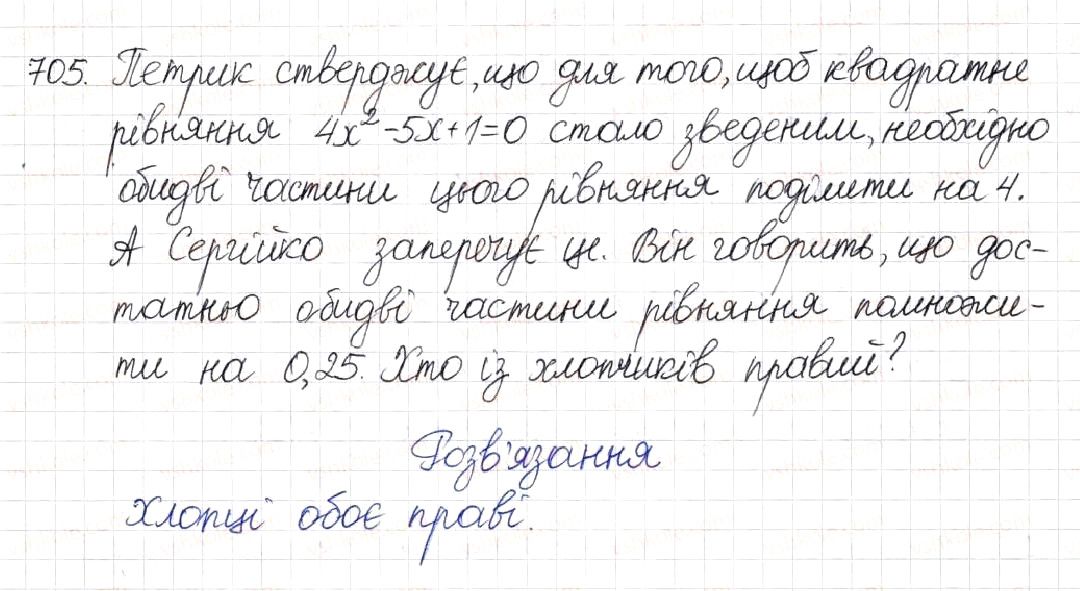 705. Петрик стверджує, що для того, щоб квадратне
рівняння 4x²-5x+1=0 стало зведеним, необхідно
обидві частини цього рівняння поділити на 4.
А Сергійко заперечує це. Він говорить, що дос-
татньо обидві частини рівняння помножи-
ти на 0,25. Хто із хлопчиків правий?
Розв'язання
Хлопці обоє праві.